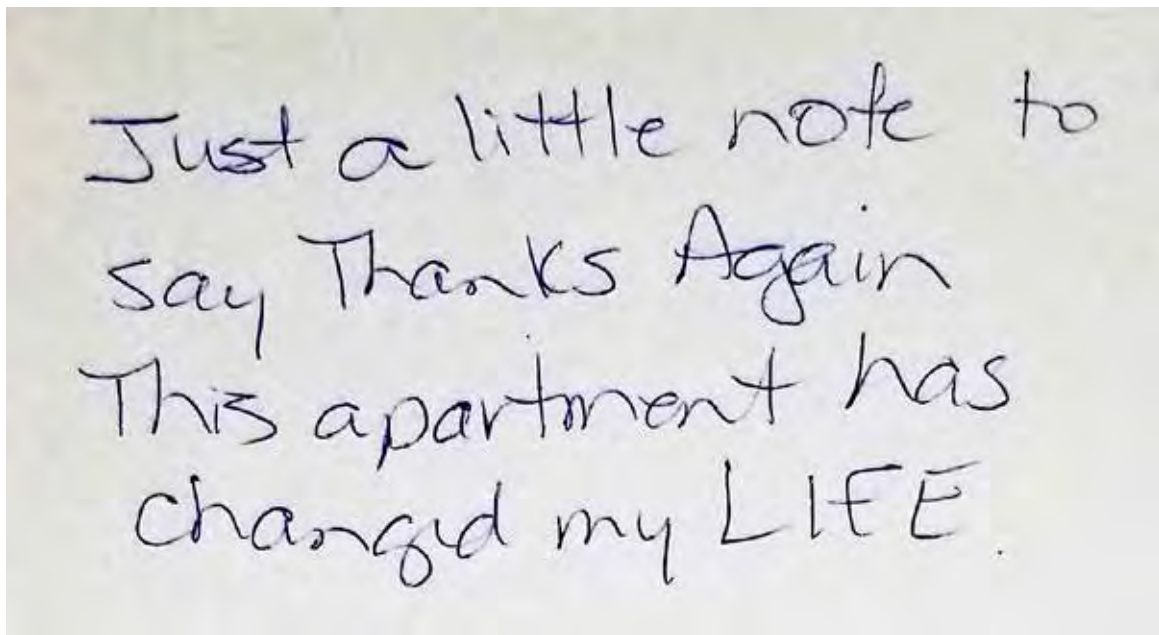 Just a little note to
say Thanks Again
This apartment has
changed my LIFE.